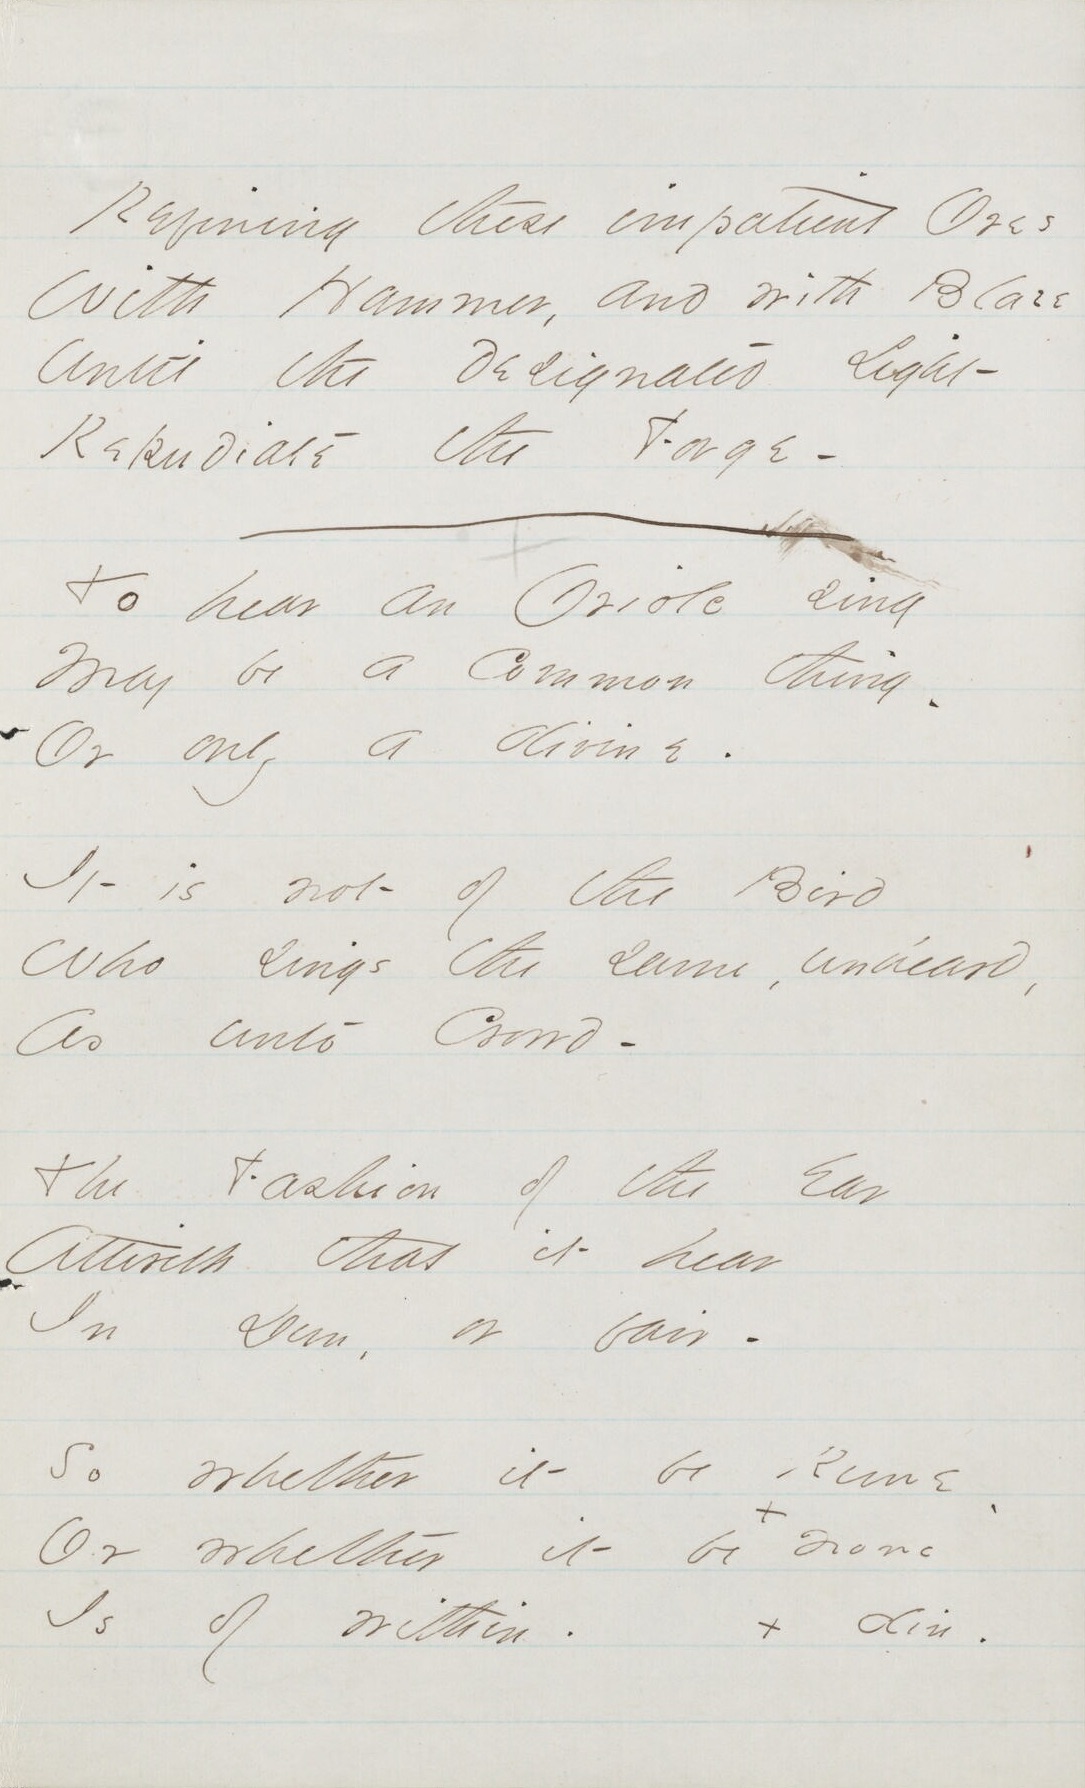 Refining these impatient Ores
With Hammer, and with Blaze
Until the designated Light -
Repudiate the Forge -
To hear an Oriole sing
May be a common thing.
Or only a divine.
It is not of the Bird
Who sings the same, unheard,
As unto Crowd -
The Fashion of the Ear
Attireth that it hear
In Dun, or fair -
So whether it be Rune,
Or whether it be + none
Is of within.    + din.